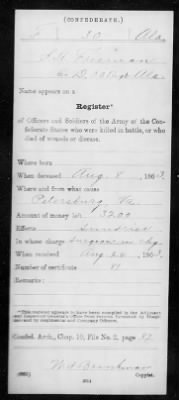 (CONFEDERATE.)
F 30 Ala
Freeman
Co D, 30 Regt Ala
Name appears on a
Register*
of Officers and Soldiers of the Army of the Confederate States who were killed in battle, or who died of wounds or disease.
Where born
When deceased Aug. 8, 1863.
Where and from what cause
Petersburg, Va.
Amount of money left 32.00
Effects Sundries
In whose charge Surgeon in chg.
When received Aug 1863.
Number of certificate
*This register appears to have been compiled by the Adjutant and Inspector General's Office from
and Company Officers.
Confed. Arch., Chap. 10, File No. 2, page 87
Copyist.